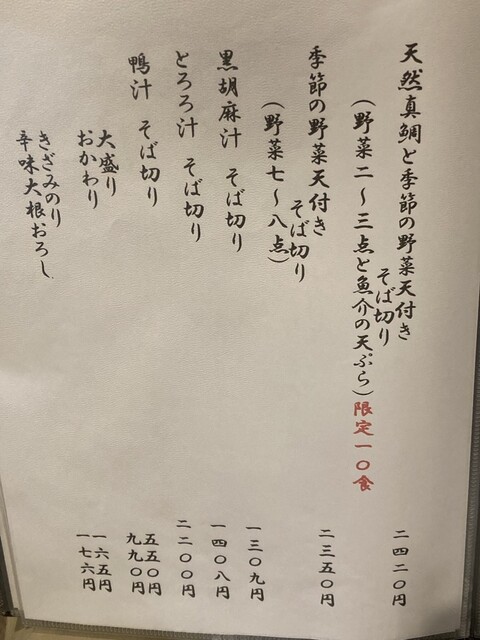 天然真鯛と季節の野菜天付き
そば切り
二四二〇円
(野菜二〜三点と魚介の天ぷら)限定一〇食
季節の野菜天付き
そば切り
二三五〇円
(野菜七〜八点)
黒胡麻汁 そば切り
一三〇九円
とろろ汁 そば切り
一四〇八円
鴨汁 そば切り
二二〇〇円
大盛り
五五〇円
おかわり
九九〇円
きざみのり
一六五円
辛味大根おろし
一七六円